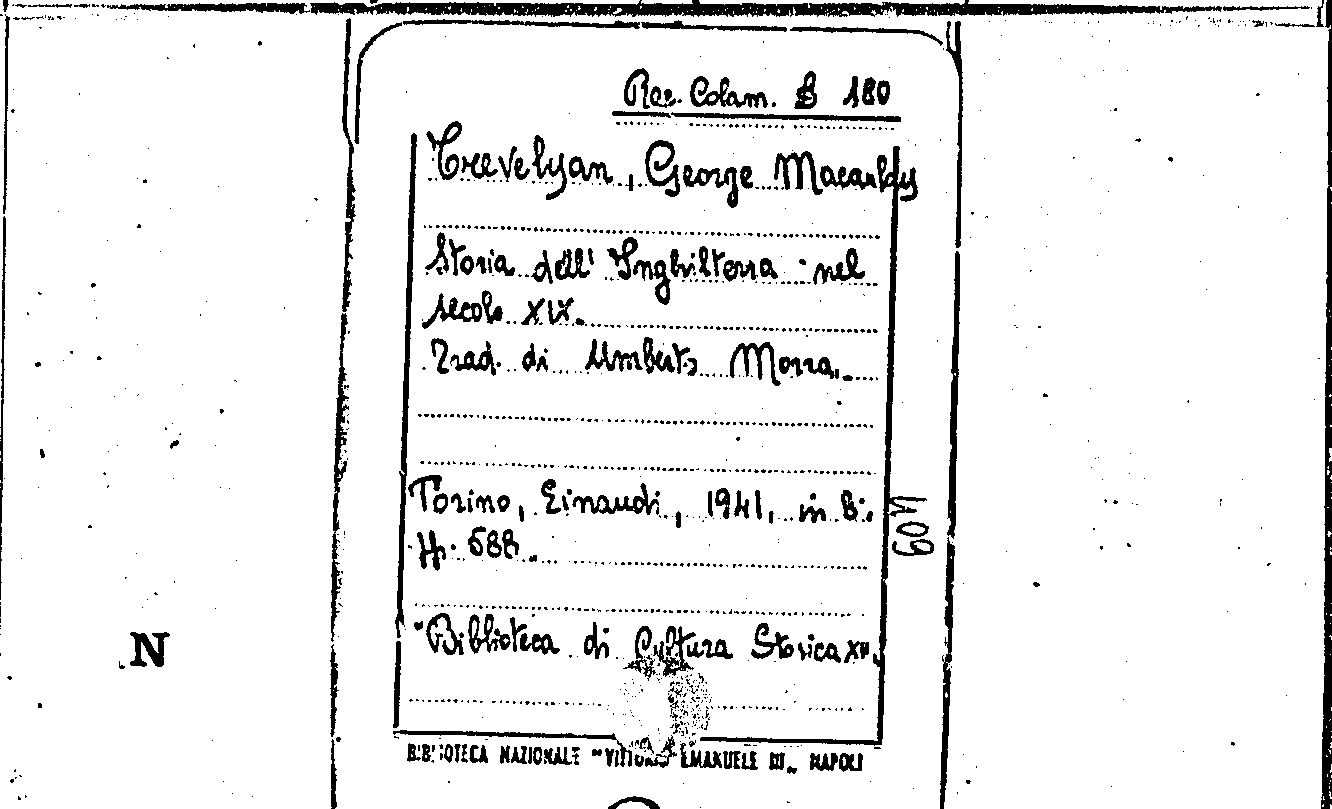 Rac. Colam. B 180
Trevelyan, George Macaulay
Storia dell' Inghilterra nel
secolo XIX.
Trad. di Umberto Morra.
Torino, Einaudi, 1941, in 8:
pp. 588.
Biblioteca di Cultura Storica XV.
BIBLIOTECA NAZIONALE "VITTORIO EMANUELE III" NAPOLI
N